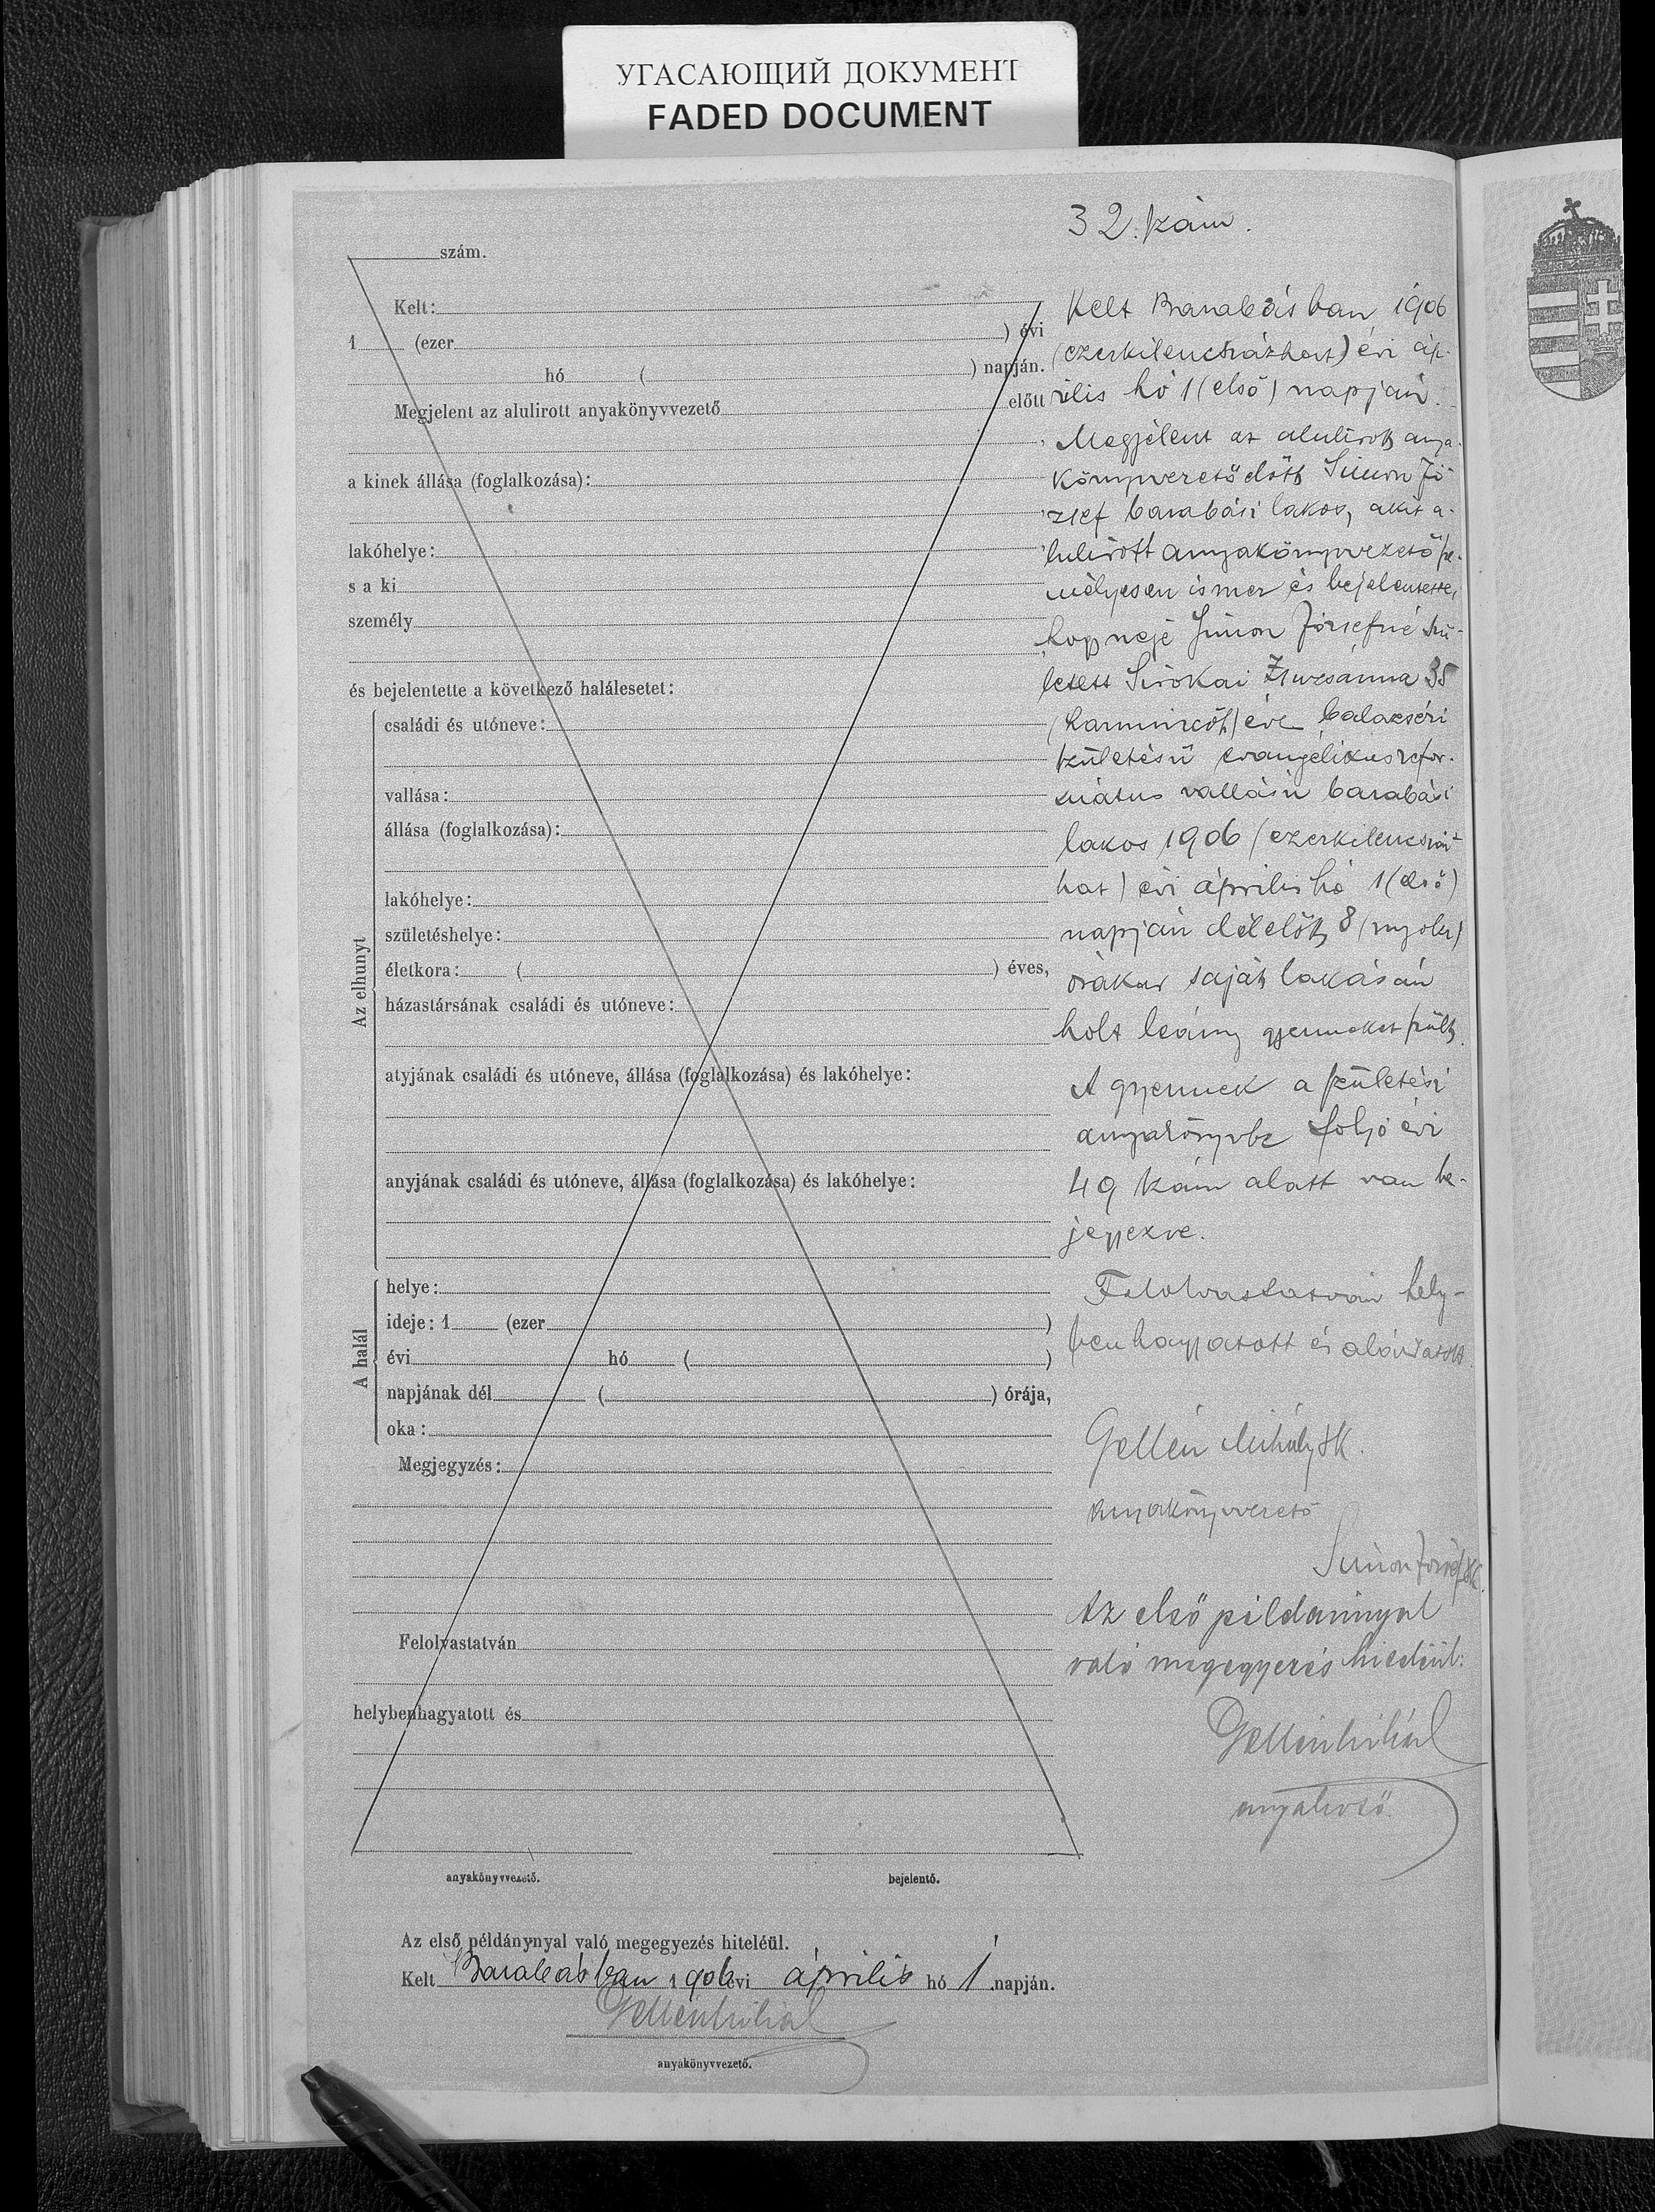 УГАСАЮЩИЙ ДОКУМЕНТ
FADED DOCUMENT
szám.
Kelt:
1 (ezer ) évi
hó ( ) napján.
Megjelent az alulirott anyakönyvvezető előtt
a kinek állása (foglalkozása):
lakóhelye:
s a ki
személy
és bejelentette a következő halálesetet:
Az elhunyt
családi és utóneve:
vallása:
állása (foglalkozása):
lakóhelye:
születéshelye:
életkora: ( ) éves,
házastársának családi és utóneve:
atyjának családi és utóneve, állása (foglalkozása) és lakóhelye:
anyjának családi és utóneve, állása (foglalkozása) és lakóhelye:
A halál
helye:
ideje: 1 (ezer )
évi hó ( )
napjának dél ( ) órája,
oka:
Megjegyzés:
Felolvastatván
helybenhagyatott és
anyakönyvvezető. bejelentő.
32. szám.
Kelt Barabásban 1906
(ezerkilencszázhat) évi áp-
rilis hó 1 (első) napján.
Megjelent az alulirott anya-
könyvvezető előtt Simon Jó
zsef barabási lakos, akit a-
lulirott anyakönyvvezető sze-
mélyesen ismer és bejelentette,
hogy neje Simon Józsefné szü-
letett Sirokai Zsuzsánna 35
(harmincöt) éve balazséri
születésű evangélikus refor-
mátus vallású barabási
lakos 1906 (ezerkilencszáz-
hat) évi április hó 1 (első)
napján délelőtt 8 (nyolcz)
órakor saját lakásán
holt leány gyermeket szült.
A gyermek a születési
anyakönyvbe folyó évi
49 szám alatt van be-
jegyezve.
Felolvastatván hely-
benhagyatott és aláiratott.
Gellén Mihály sk.
anyakönyvvezető
Simon József sk.
Az első példánnyal
való megegyezés hiteléül:
Gellén Mihál
Az első példánynyal való megegyezés hiteléül.
Kelt Barabásban 1906 évi április hó 1 napján.
Gellén Mihál
anyakönyvvezető.